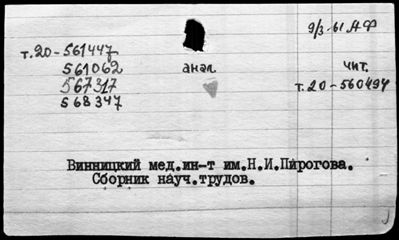 9/3-61 АФ
т.20-561447
561062
567317
568347
анал.
чит.
т.20-560494
Винницкий мед.ин-т им.Н.И.Пирогова.
Сборник науч.трудов.